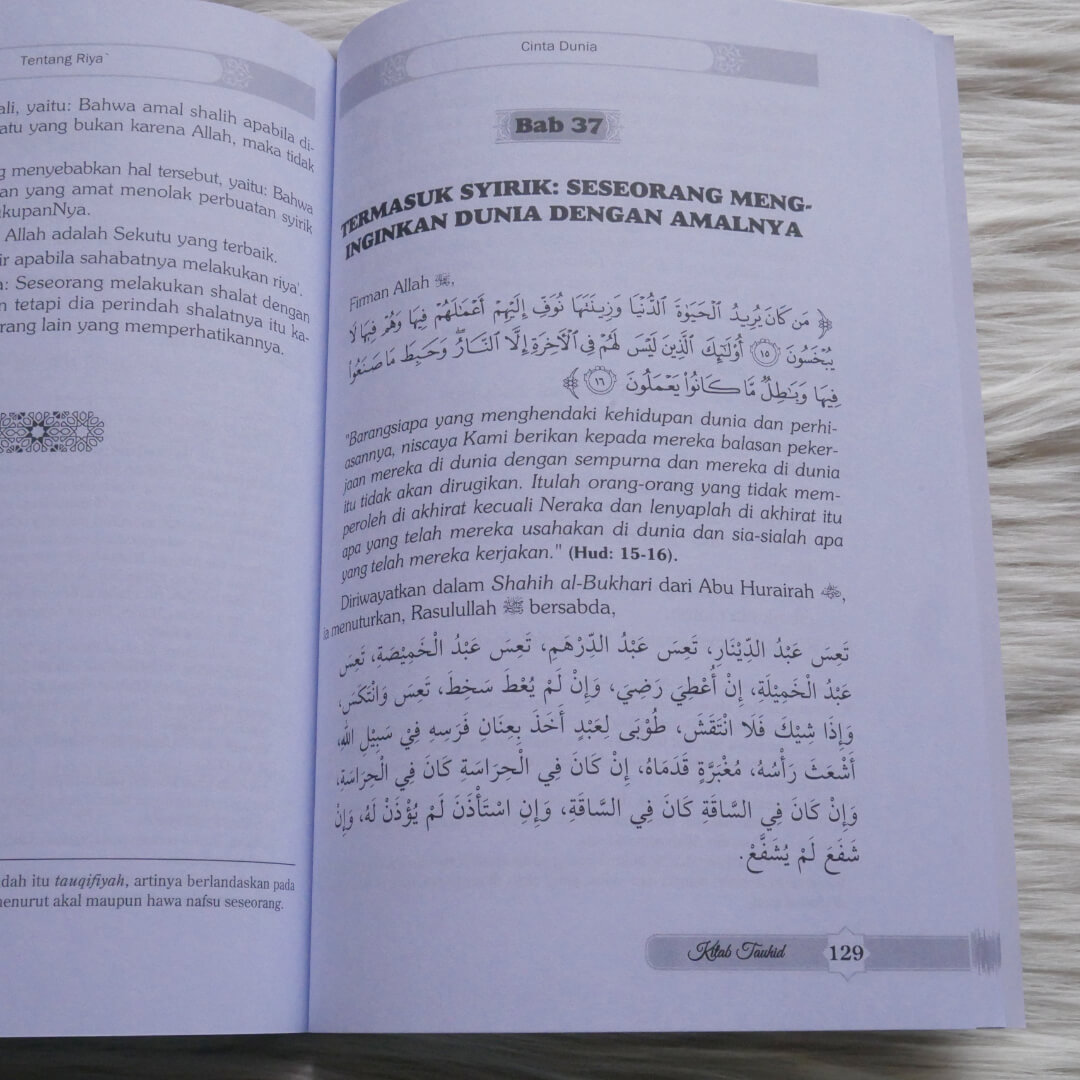 Tentang Riya`
ali, yaitu: Bahwa amal shalih apabila di-
atu yang bukan karena Allah, maka tidak
g menyebabkan hal tersebut, yaitu: Bahwa
an yang amat menolak perbuatan syirik
kupanNya.
Allah adalah Sekutu yang terbaik.
ir apabila sahabatnya melakukan riya'.
a: Seseorang melakukan shalat dengan
n tetapi dia perindah shalatnya itu ka-
rang lain yang memperhatikannya.
dah itu tauqifiyah, artinya berlandaskan pada
nenurut akal maupun hawa nafsu seseorang.
Cinta Dunia
Bab 37
TERMASUK SYIRIK: SESEORANG MENG-
INGINKAN DUNIA DENGAN AMALNYA
Firman Allah ﷻ,
﴿ مَن كَانَ يُرِيدُ ٱلْحَيَوٰةَ ٱلدُّنْيَا وَزِينَتَهَا نُوَفِّ إِلَيْهِمْ أَعْمَٰلَهُمْ فِيهَا وَهُمْ فِيهَا لَا
يُبْخَسُونَ ١٥ أُو۟لَٰٓئِكَ ٱلَّذِينَ لَيْسَ لَهُمْ فِى ٱلْـَٔاخِرَةِ إِلَّا ٱلنَّارُ ۖ وَحَبِطَ مَا صَنَعُوا۟
فِيهَا وَبَٰطِلٌ مَّا كَانُوا۟ يَعْمَلُونَ ١٦ ﴾
"Barangsiapa yang menghendaki kehidupan dunia dan perhi-
asannya, niscaya Kami berikan kepada mereka balasan peker-
jaan mereka di dunia dengan sempurna dan mereka di dunia
itu tidak akan dirugikan. Itulah orang-orang yang tidak mem-
peroleh di akhirat kecuali Neraka dan lenyaplah di akhirat itu
apa yang telah mereka usahakan di dunia dan sia-sialah apa
yang telah mereka kerjakan." (Hud: 15-16).
Diriwayatkan dalam Shahih al-Bukhari dari Abu Hurairah ؓ,
ia menuturkan, Rasulullah ﷺ bersabda,
تَعِسَ عَبْدُ الدِّيْنَارِ، تَعِسَ عَبْدُ الدِّرْهَمِ، تَعِسَ عَبْدُ الْخَمِيْصَةِ، تَعِسَ
عَبْدُ الْخَمِيْلَةِ، إِنْ أُعْطِيَ رَضِيَ، وَإِنْ لَمْ يُعْطَ سَخِطَ، تَعِسَ وَانْتَكَسَ،
وَإِذَا شِيْكَ فَلَا انْتَقَشَ، طُوْبَى لِعَبْدٍ أَخَذَ بِعِنَانِ فَرَسِهِ فِيْ سَبِيْلِ اللهِ،
أَشْعَثَ رَأْسُهُ، مُغْبَرَّةٍ قَدَمَاهُ، إِنْ كَانَ فِي الْحِرَاسَةِ كَانَ فِي الْحِرَاسَةِ،
وَإِنْ كَانَ فِي السَّاقَةِ كَانَ فِي السَّاقَةِ، وَإِنِ اسْتَأْذَنَ لَمْ يُؤْذَنْ لَهُ، وَإِنْ
شَفَعَ لَمْ يُشَفَّعْ.
Kitab Tauhid 129